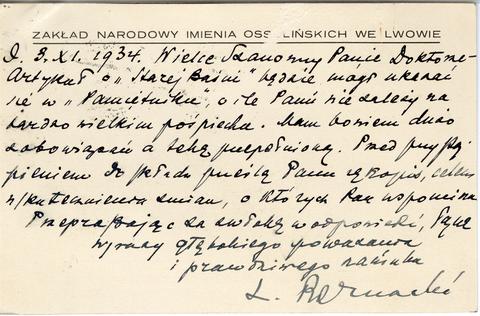 ZAKŁAD NARODOWY IMIENIA OSSOLIŃSKICH WE LWOWIE
D. 3. XI. 1934. Wielce Szanowny Panie Doktorze
Artykuł o „Starej Baśni" będzie mógł ukazać
się w „Pamiętniku", o ile Panu nie zależy na
bardzo wielkim pośpiechu. Mam bowiem dużo
zobowiązań a tekę przepełnioną. Przed przystą-
pieniem do składu prześlę Panu rękopis, celem
uskutecznienia zmian, o których Pan wspomina
Przepraszając za zwłokę w odpowiedzi, łączę
wyrazy głębokiego poważania
i prawdziwego szacunku
L. Bernacki